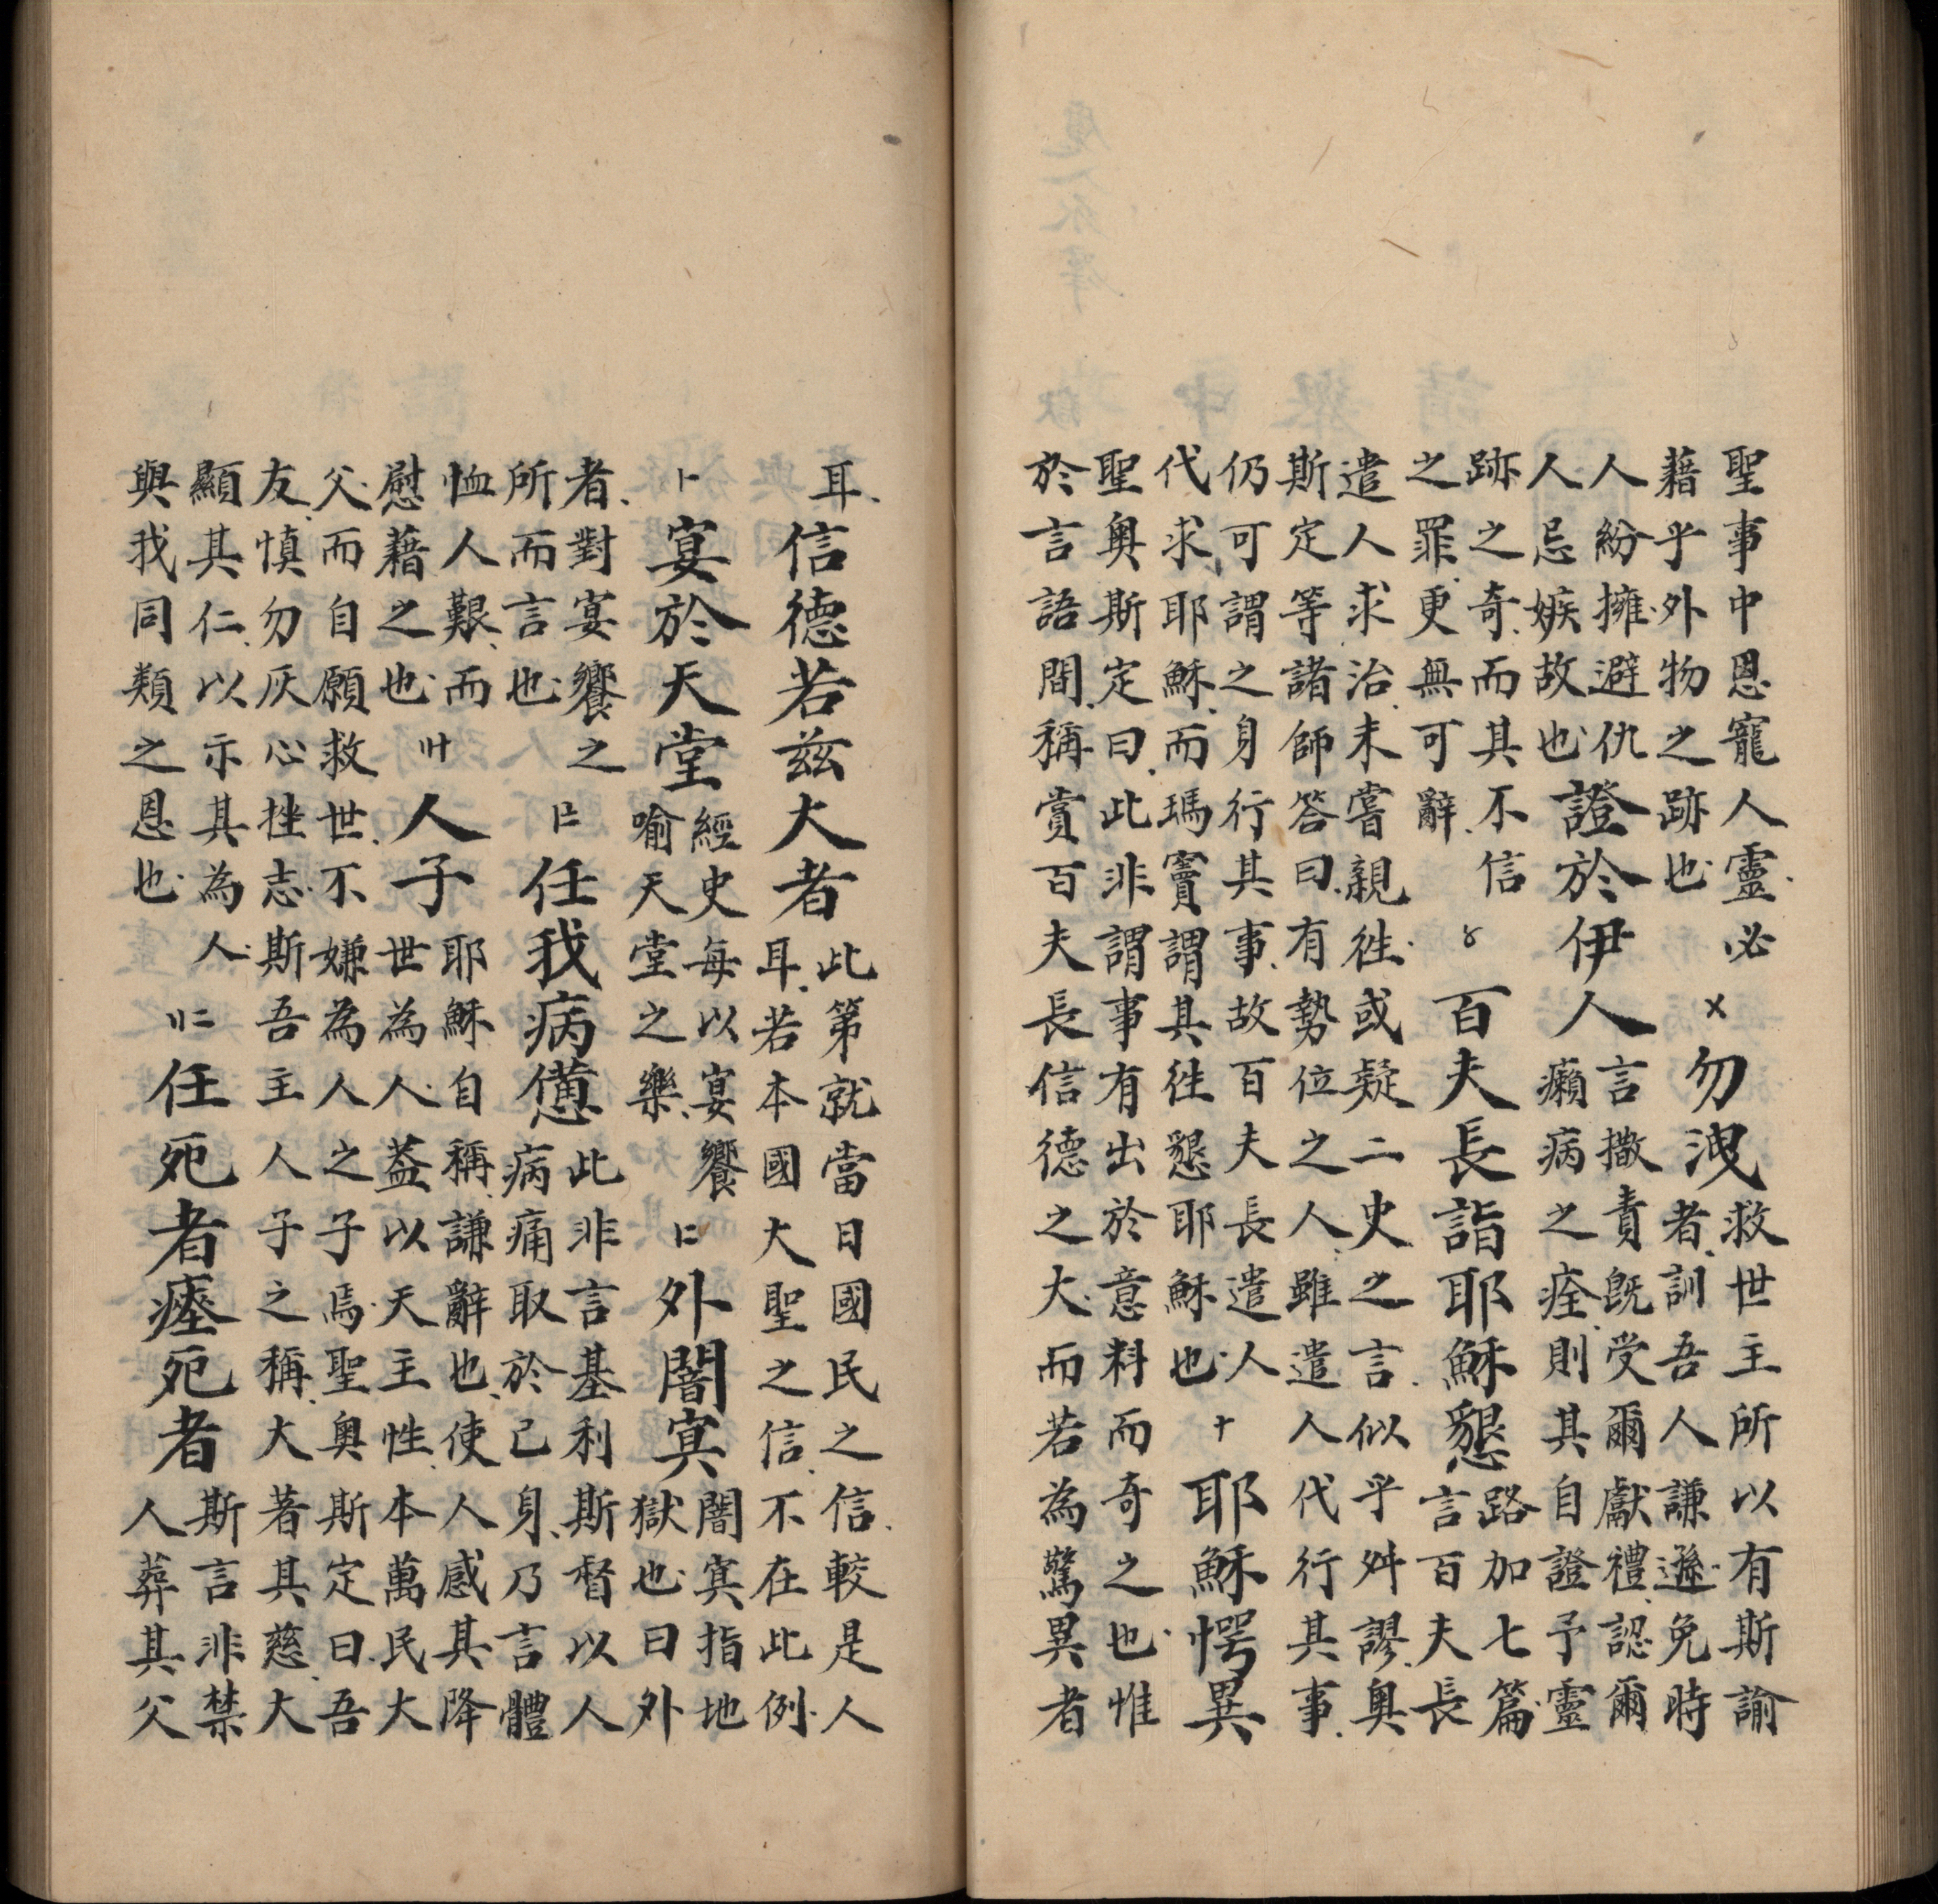 聖事中恩寵人靈必
藉乎外物之跡也
〤 勿洩
救世主所以有斯諭
者訓吾人謙遜免時
人紛擁避仇
人忌嫉故也
證於伊人
言撒責既受爾獻禮認爾
癩病之痊則其自證予靈
跡之奇而其不信
之罪更無可辭
〥 百夫長詣耶穌懇
路加七篇
言百夫長
遣人求治未嘗親徃或疑二史之言似乎舛謬奥
斯定等諸師答曰有勢位之人雖遣人代行其事
仍可謂之身行其事故百夫長遣人
代求耶穌而瑪竇謂其徃懇耶穌也
十 耶穌愕異
聖奥斯定曰此非謂事有出於意料而奇之也惟
於言語間稱賞百夫長信德之大而若為驚異者
耳
信德若兹大者
此第就當日國民之信較是人
耳若本國大聖之信不在此例
宴於天堂
經史每以宴饗
喻天堂之樂
外闇寞
闇寞指地
獄也曰外
者對宴饗之
所而言也
任我病憊
此非言基利斯督以人
病痛取於己身乃言體
恤人艱而
慰藉之也
人子
耶穌自稱謙辭也使人感其降
世為人葢以天主性本萬民大
父而自願救世不嫌為人之子焉聖奥斯定曰吾
友慎勿灰心挫志斯吾主人子之稱大著其慈大
顯其仁以示其為人
與我同類之恩也
任死者瘞死者
斯言非禁
人葬其父